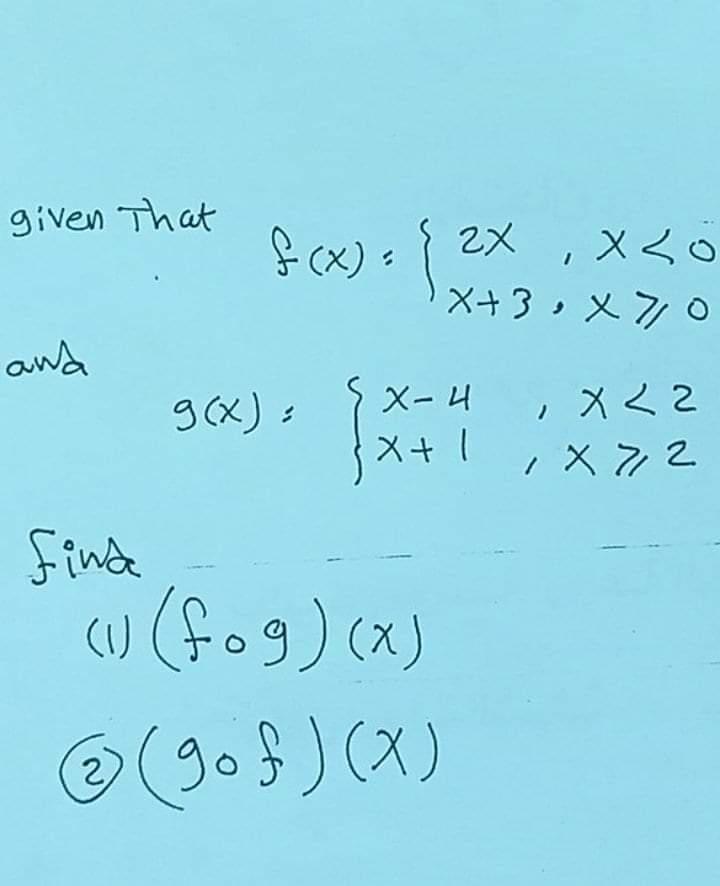 given That f(x) = { 2x , x < 0
x + 3 , x ⩾ 0
and g(x) = { x - 4 , x < 2
x + 1 , x ⩾ 2
find
(1) (f o g) (x)
② (g o f) (x)